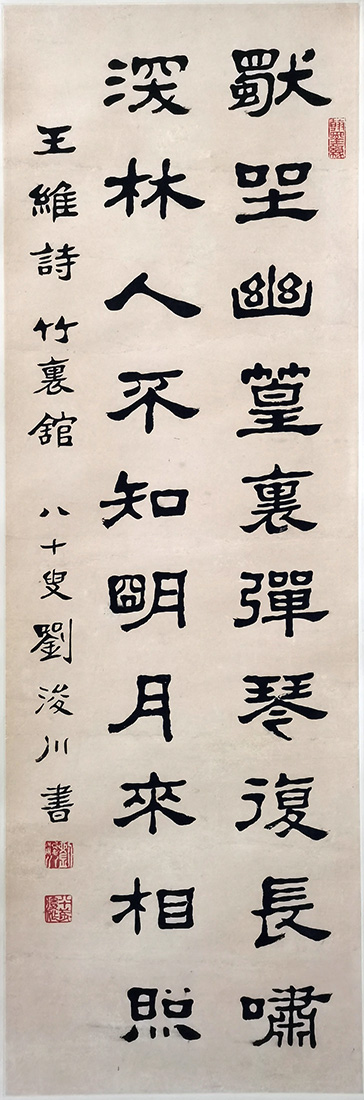 獨坐幽篁裏彈琴復長嘯
深林人不知明月來相照
王維詩竹裏舘 八十叟劉浚川書